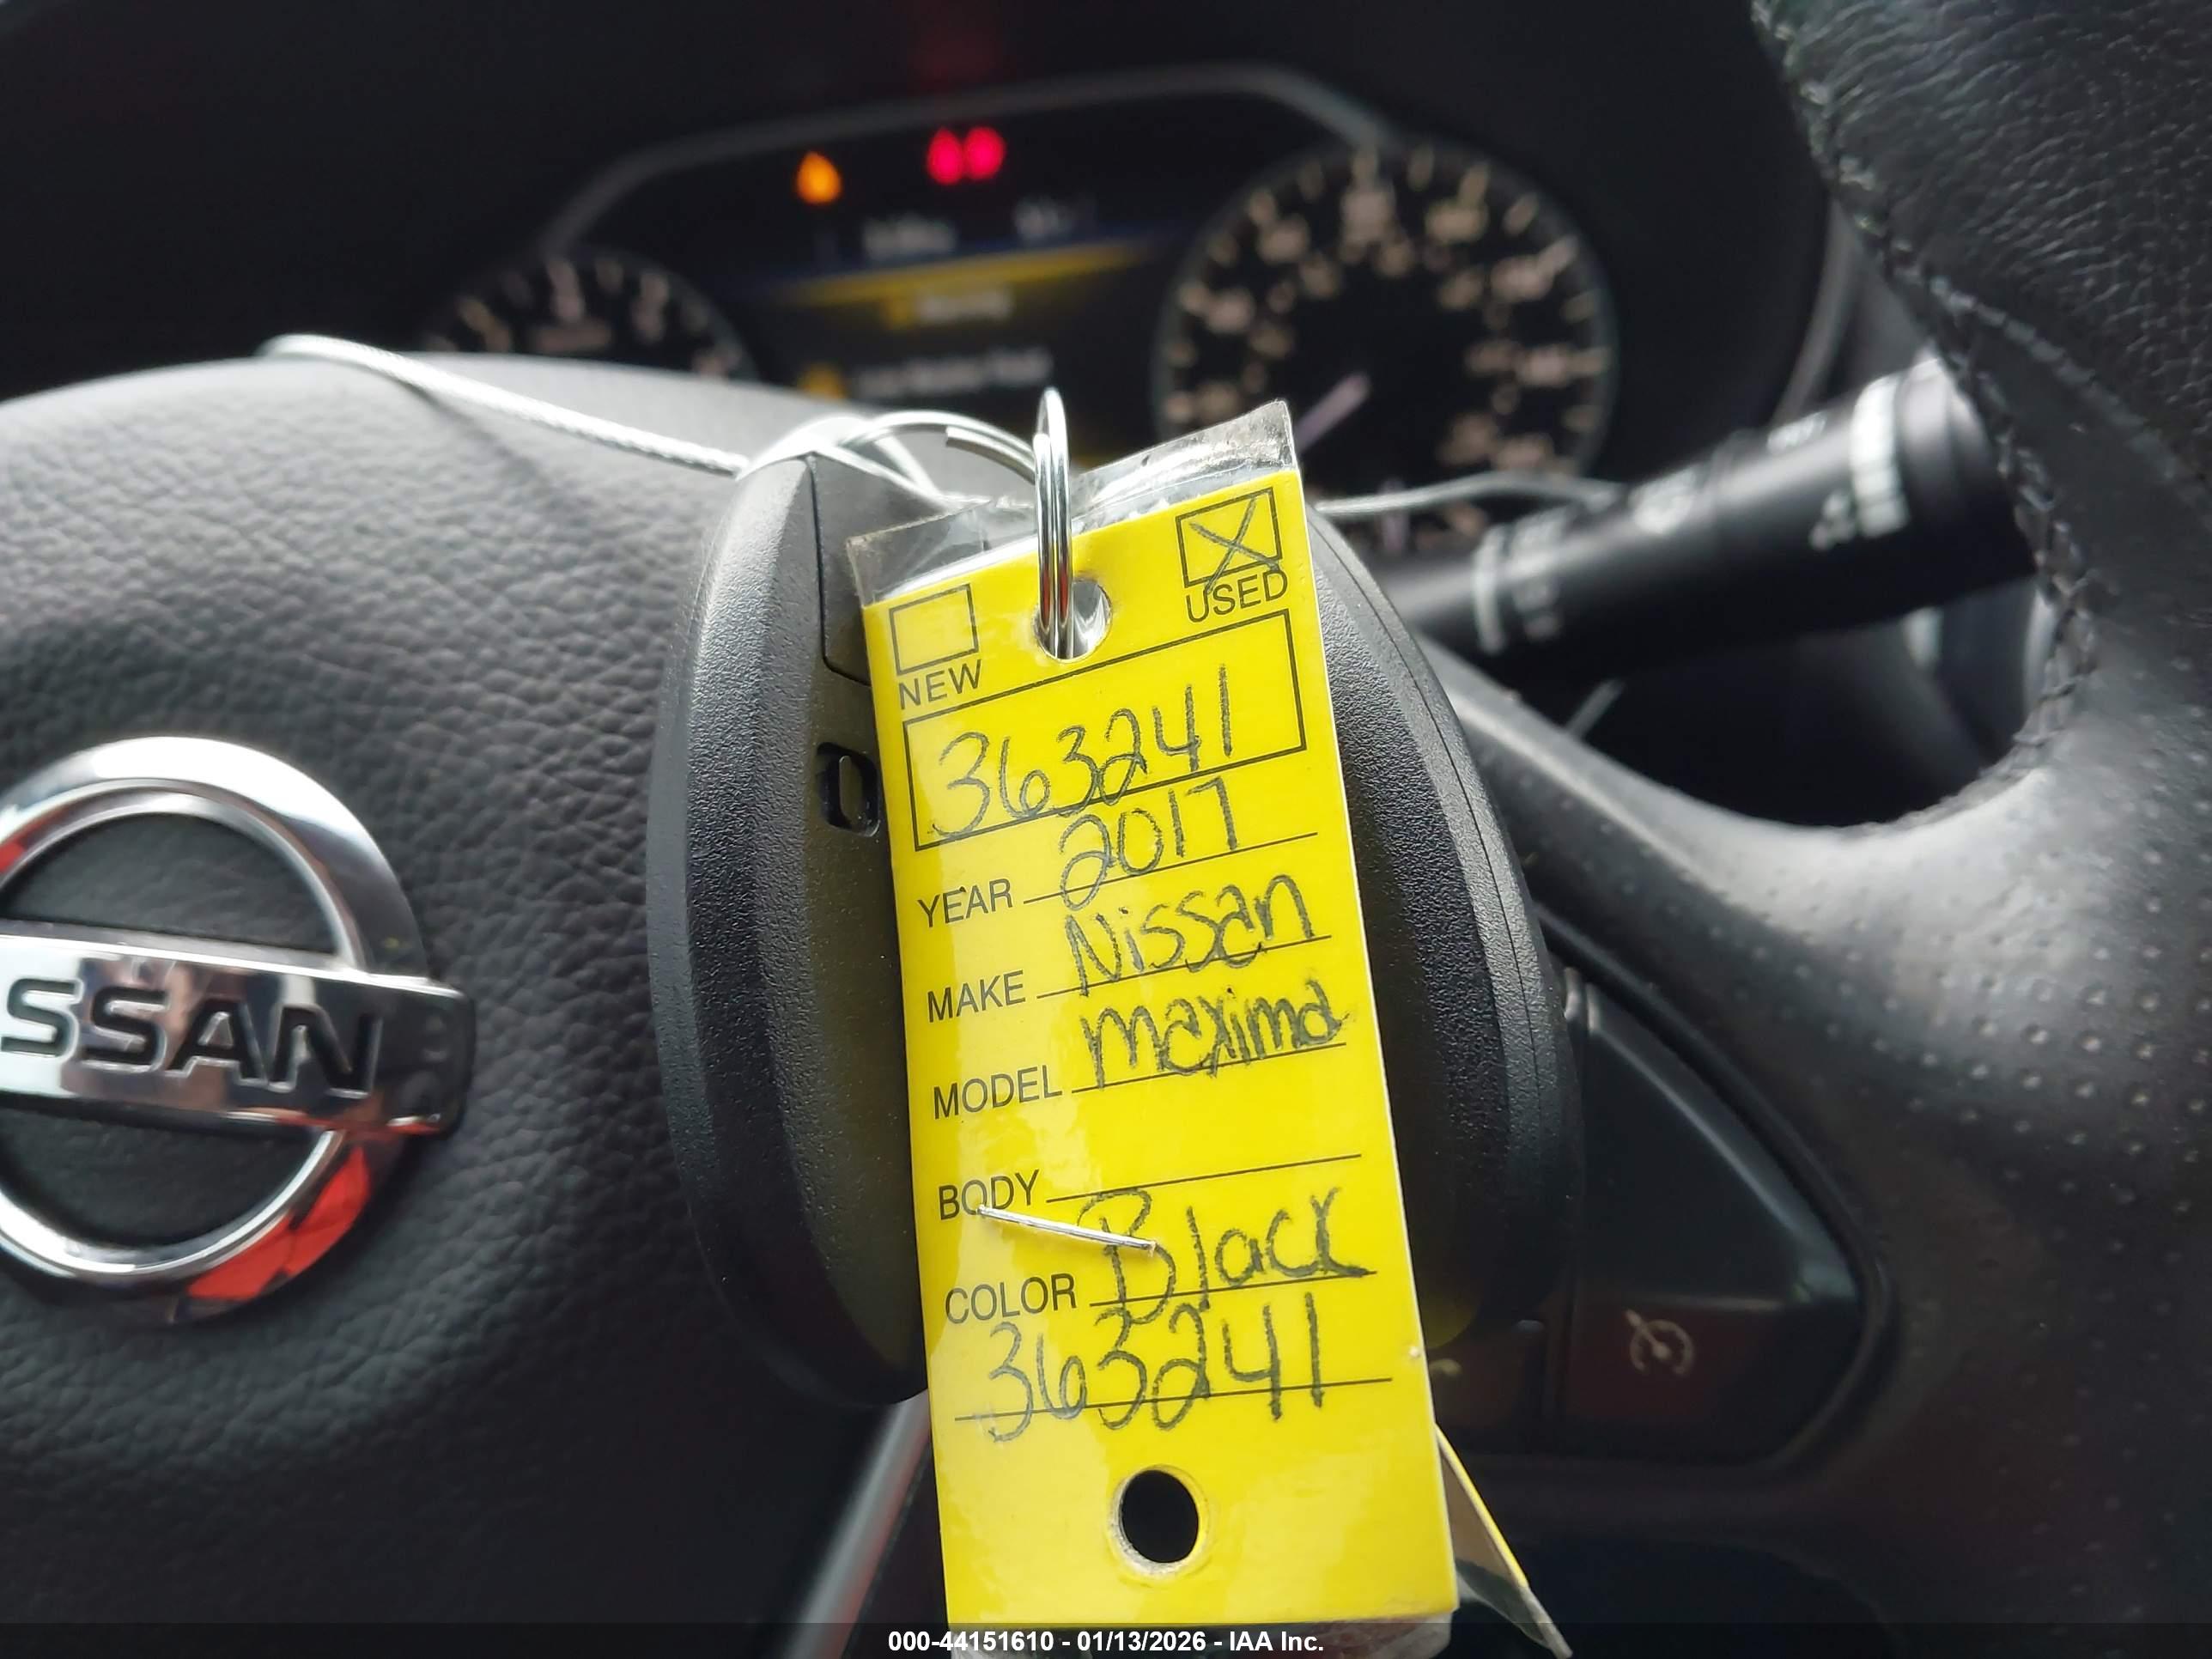 NEW
USED
363241
YEAR 2017
MAKE Nissan
MODEL maxima
BODY
COLOR Black
363241
SSAN
000-44151610 - 01/13/2026 - IAA Inc.